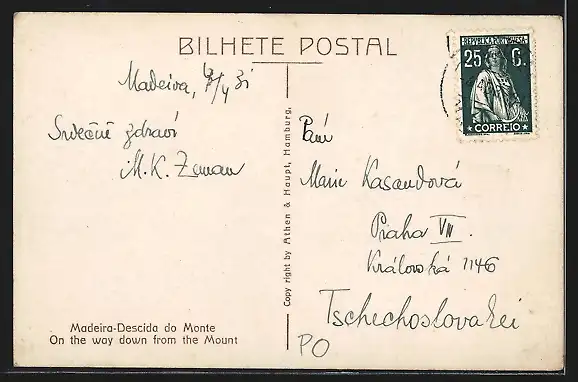 BILHETE POSTAL
Madeira, 6/4 31
Srdečně zdraví
M. K. Zeman
Madeira-Descida do Monte
On the way down from the Mount
Copy right by Athen & Haupt, Hamburg.
REPUBLICA PORTUGUESA
25 C.
CORREIO
Paní
Marie Kasandová
Praha VII.
Královská 1146
Tschechoslovakei
PO